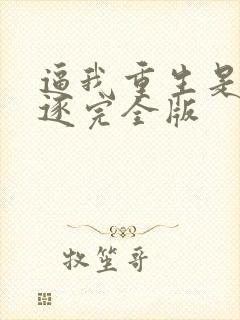 逼我重生是
逐完全版
牧笙哥